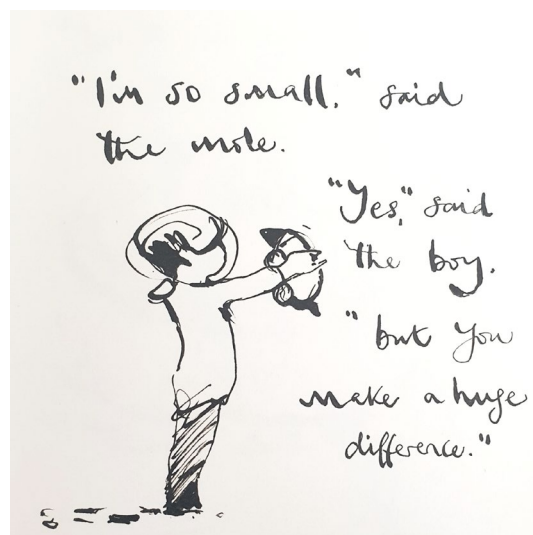 "I'm so small," said
the mole.
"Yes," said
the boy,
"but you
make a huge
difference."